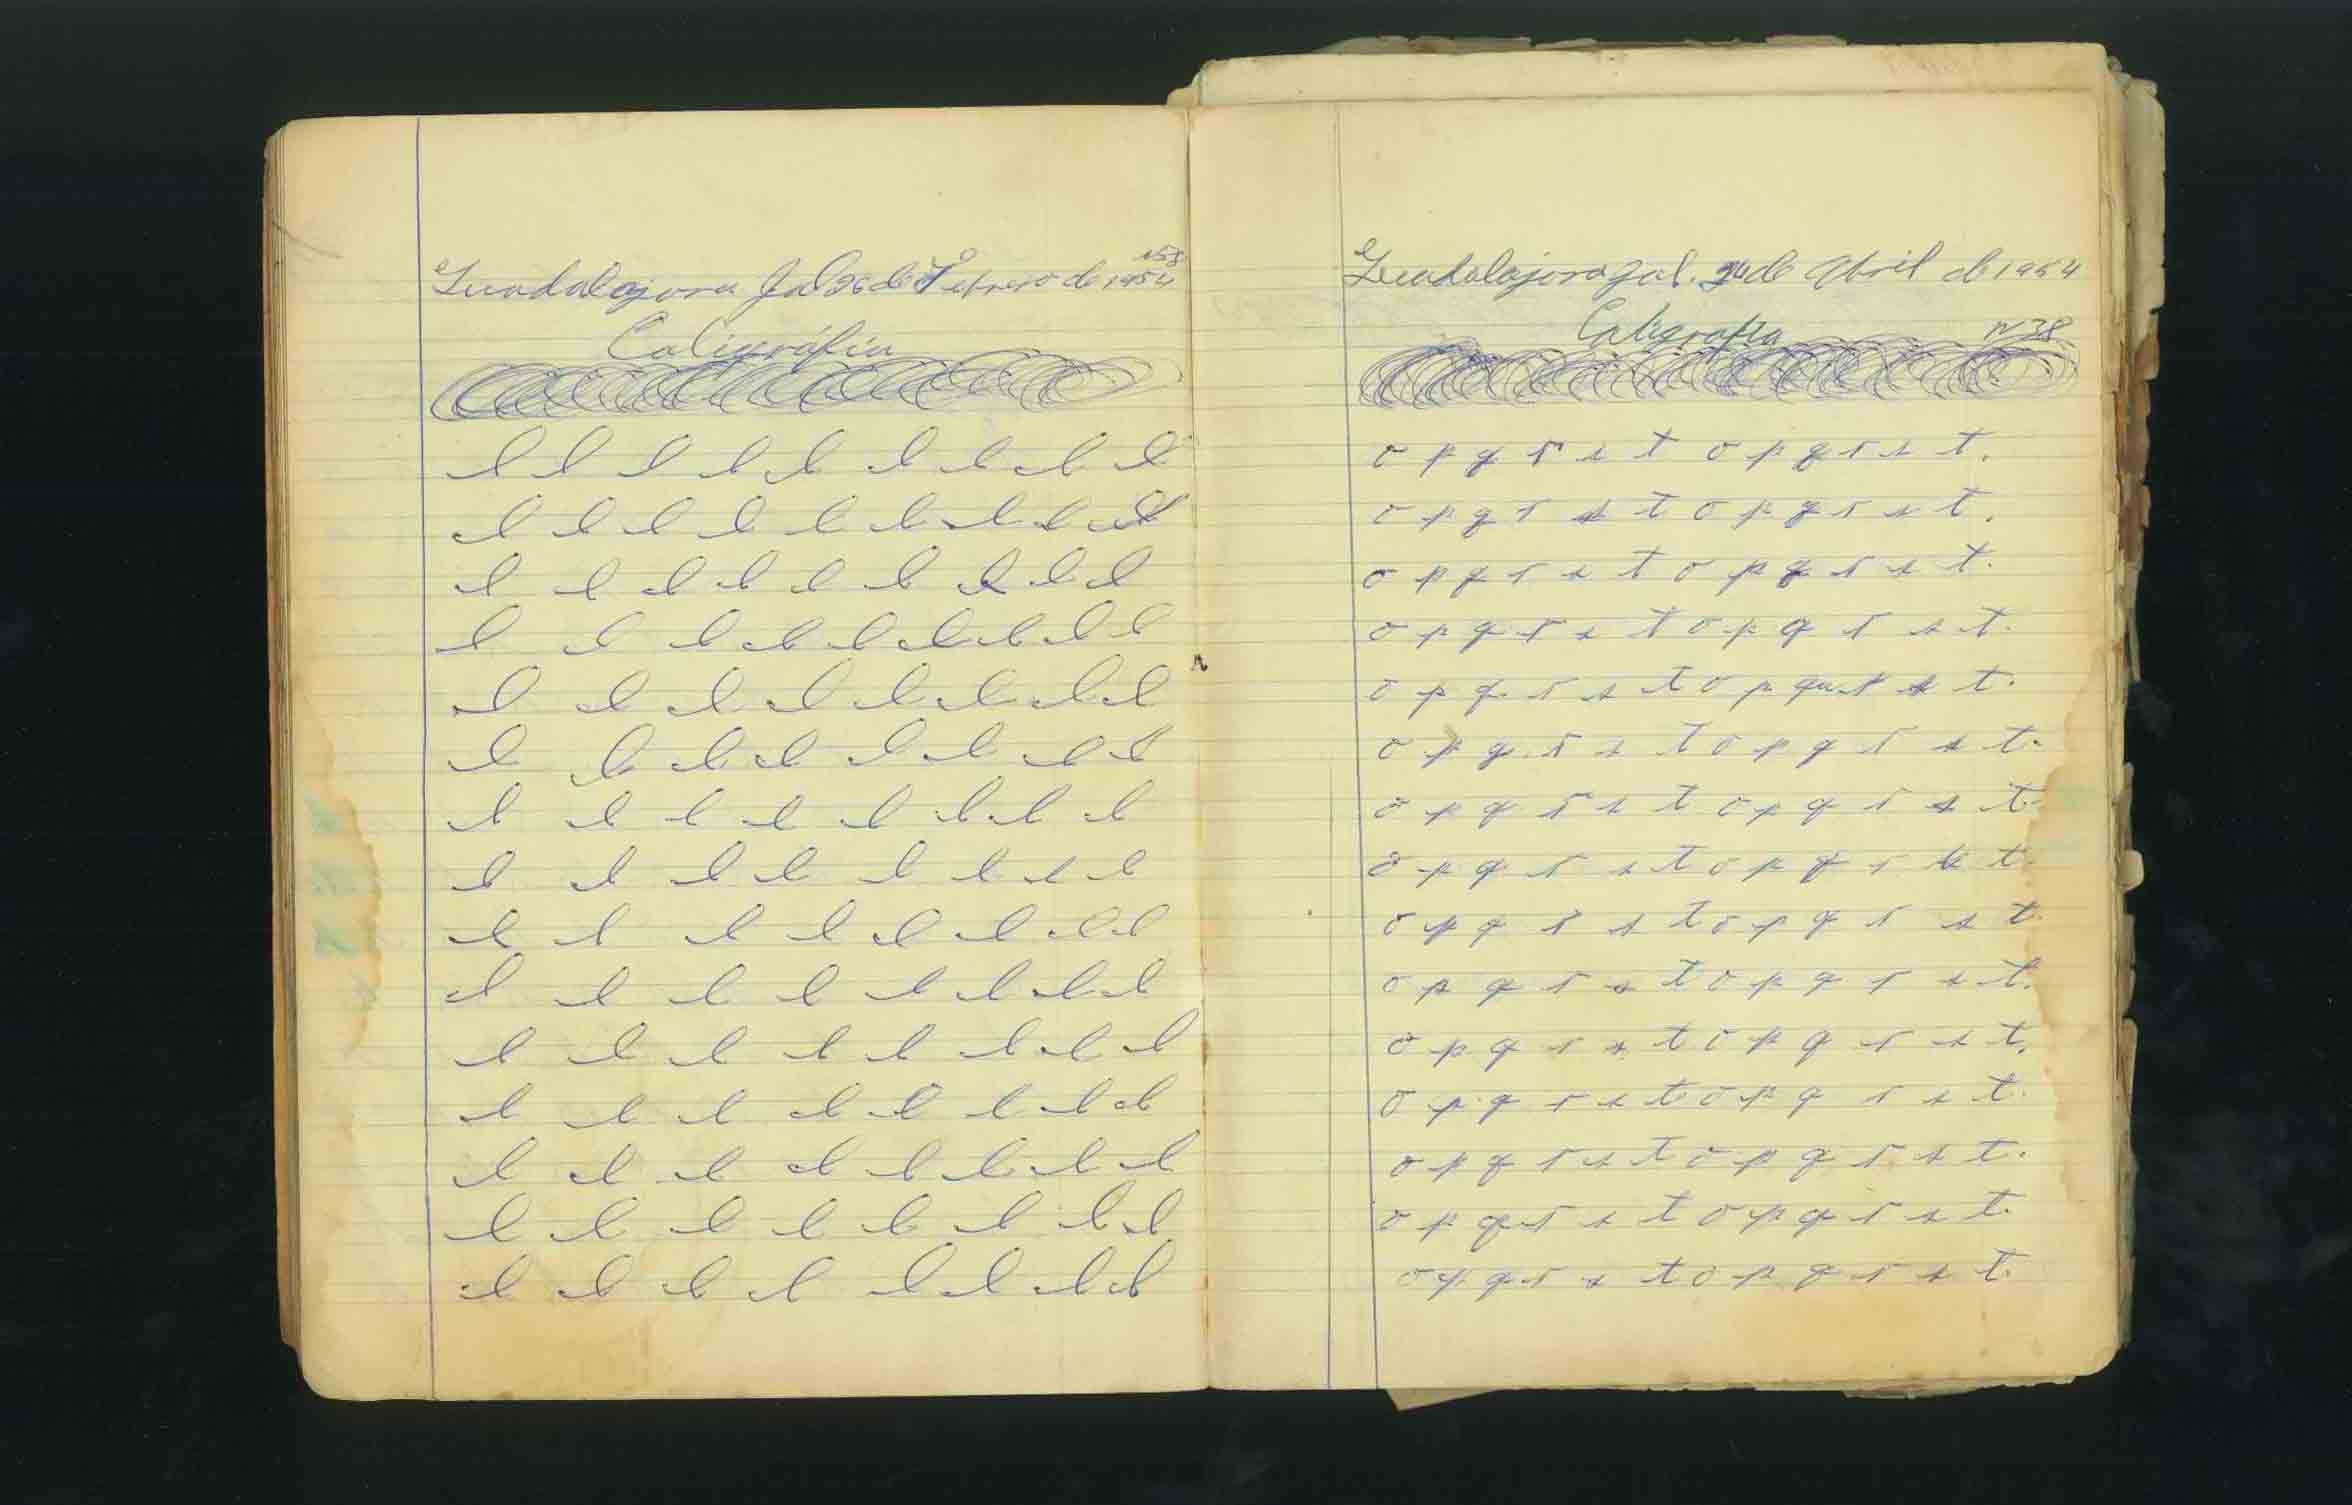 N58
Guadalajara Jal 26 de Febrero de 1954
Caligráfia
l l l l l l l l l
l l l l l l l l l
l l l l l l l l l
l l l l l l l l l
l l l l l l l l
l l l l l l l l
l l l l l l l l
l l l l l l l l
l l l l l l l l
l l l l l l l l
l l l l l l l l
l l l l l l l l
l l l l l l l l
l l l l l l l l
l l l l l l l l
Guadalajara Jal. 24 de Abril de 1954
Caligrafia N38
o p q r s t o p q r s t.
o p q r s t o p q r s t.
o p q r s t o p q r s t.
o p q r s t o p q r s t.
o p q r s t o p qu r s t.
o p q r s t o p q r s t.
o p q r s t o p q r s t.
o p q r s t o p q r s t.
o p q r s t o p q r s t.
o p q r s t o p q r s t.
o p q r s t o p q r s t.
o p q r s t o p q r s t.
o p q r s t o p q r s t.
o p q r s t o p q r s t.
o p q r s t o p q r s t.